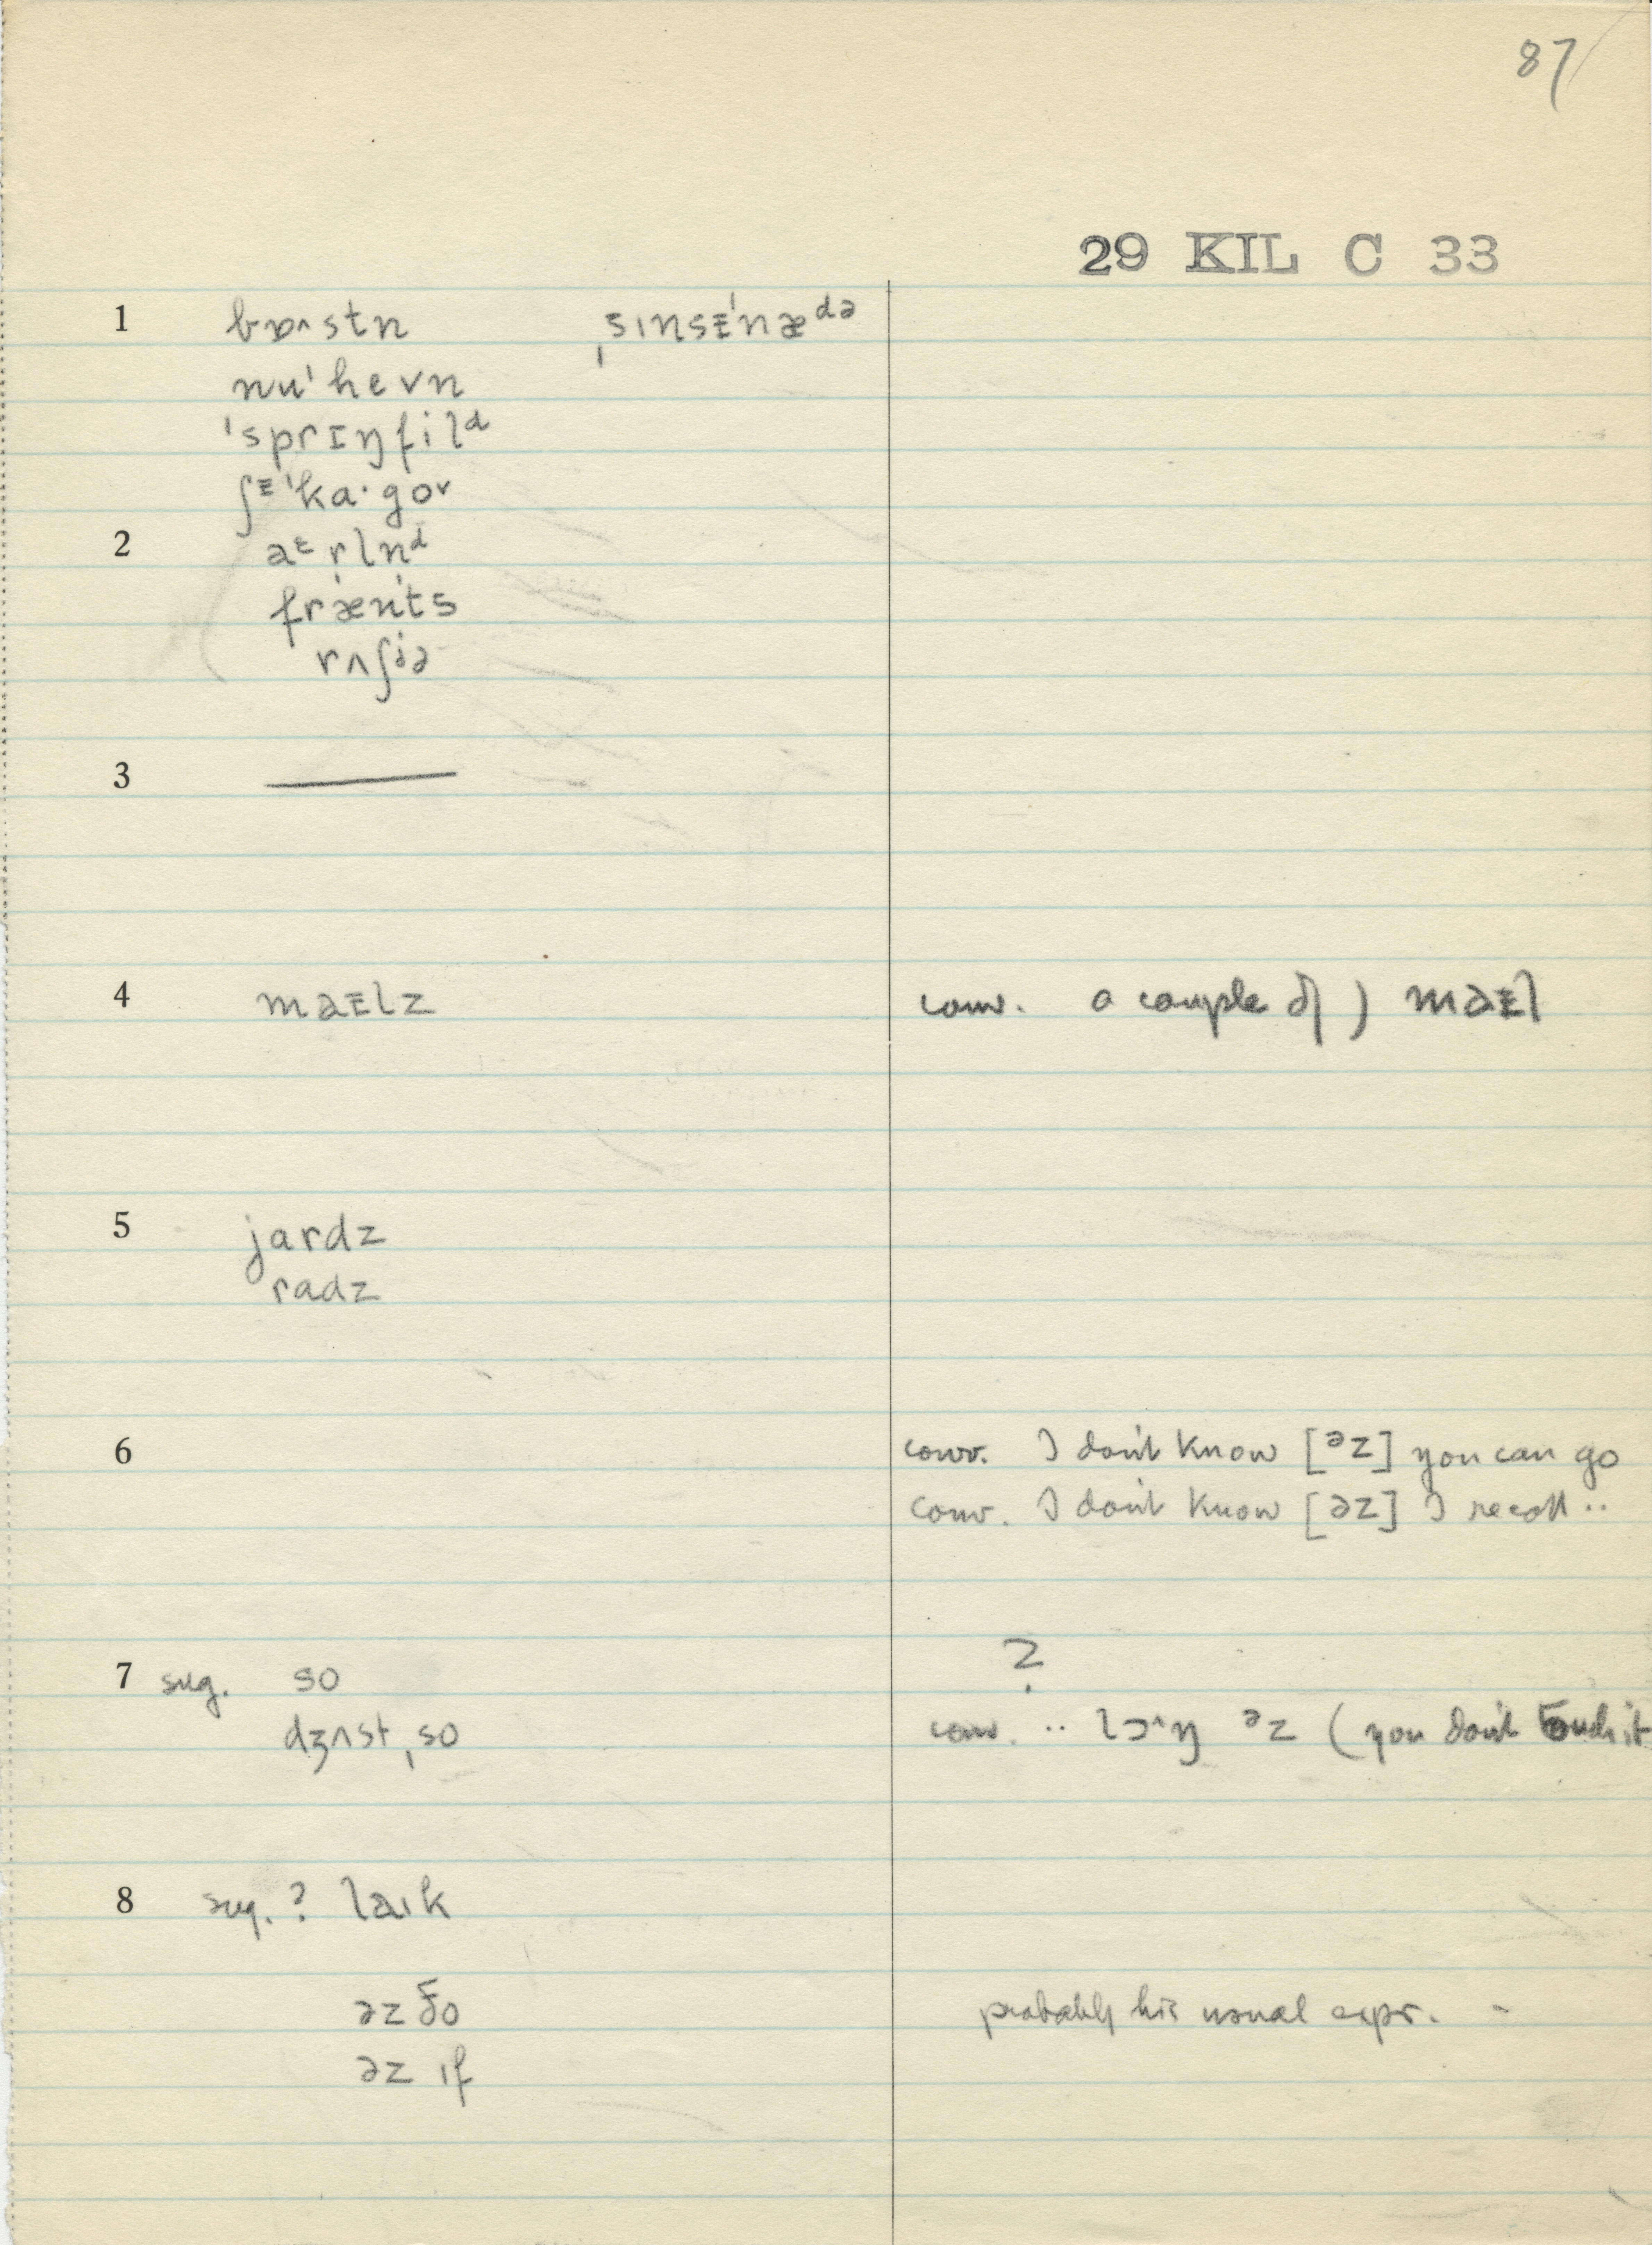 87
29 KIL C 33
1 bɒ^stn ˌsɪnsᵻˈnæᵈə
nuˈhevn
ˈsprɪŋfilᵈ
ʃᵻˈka·goᵛ
2 aᵋrln̩ᵈ
frænts
rʌʃiə
3 —
4 maᵻlz conv. a couple of) maᵻl
5 jardz
radz
6 conv. I don't know [əz] you can go
conv. I don't know [əz] I recall ..
7 sug. so ?
dʒʌst ˌso conv. .. lɔ^ŋ əz (you don't touch it
8 sug. ? laɪk
əz ðo probably his usual expr. -
əz ɪf